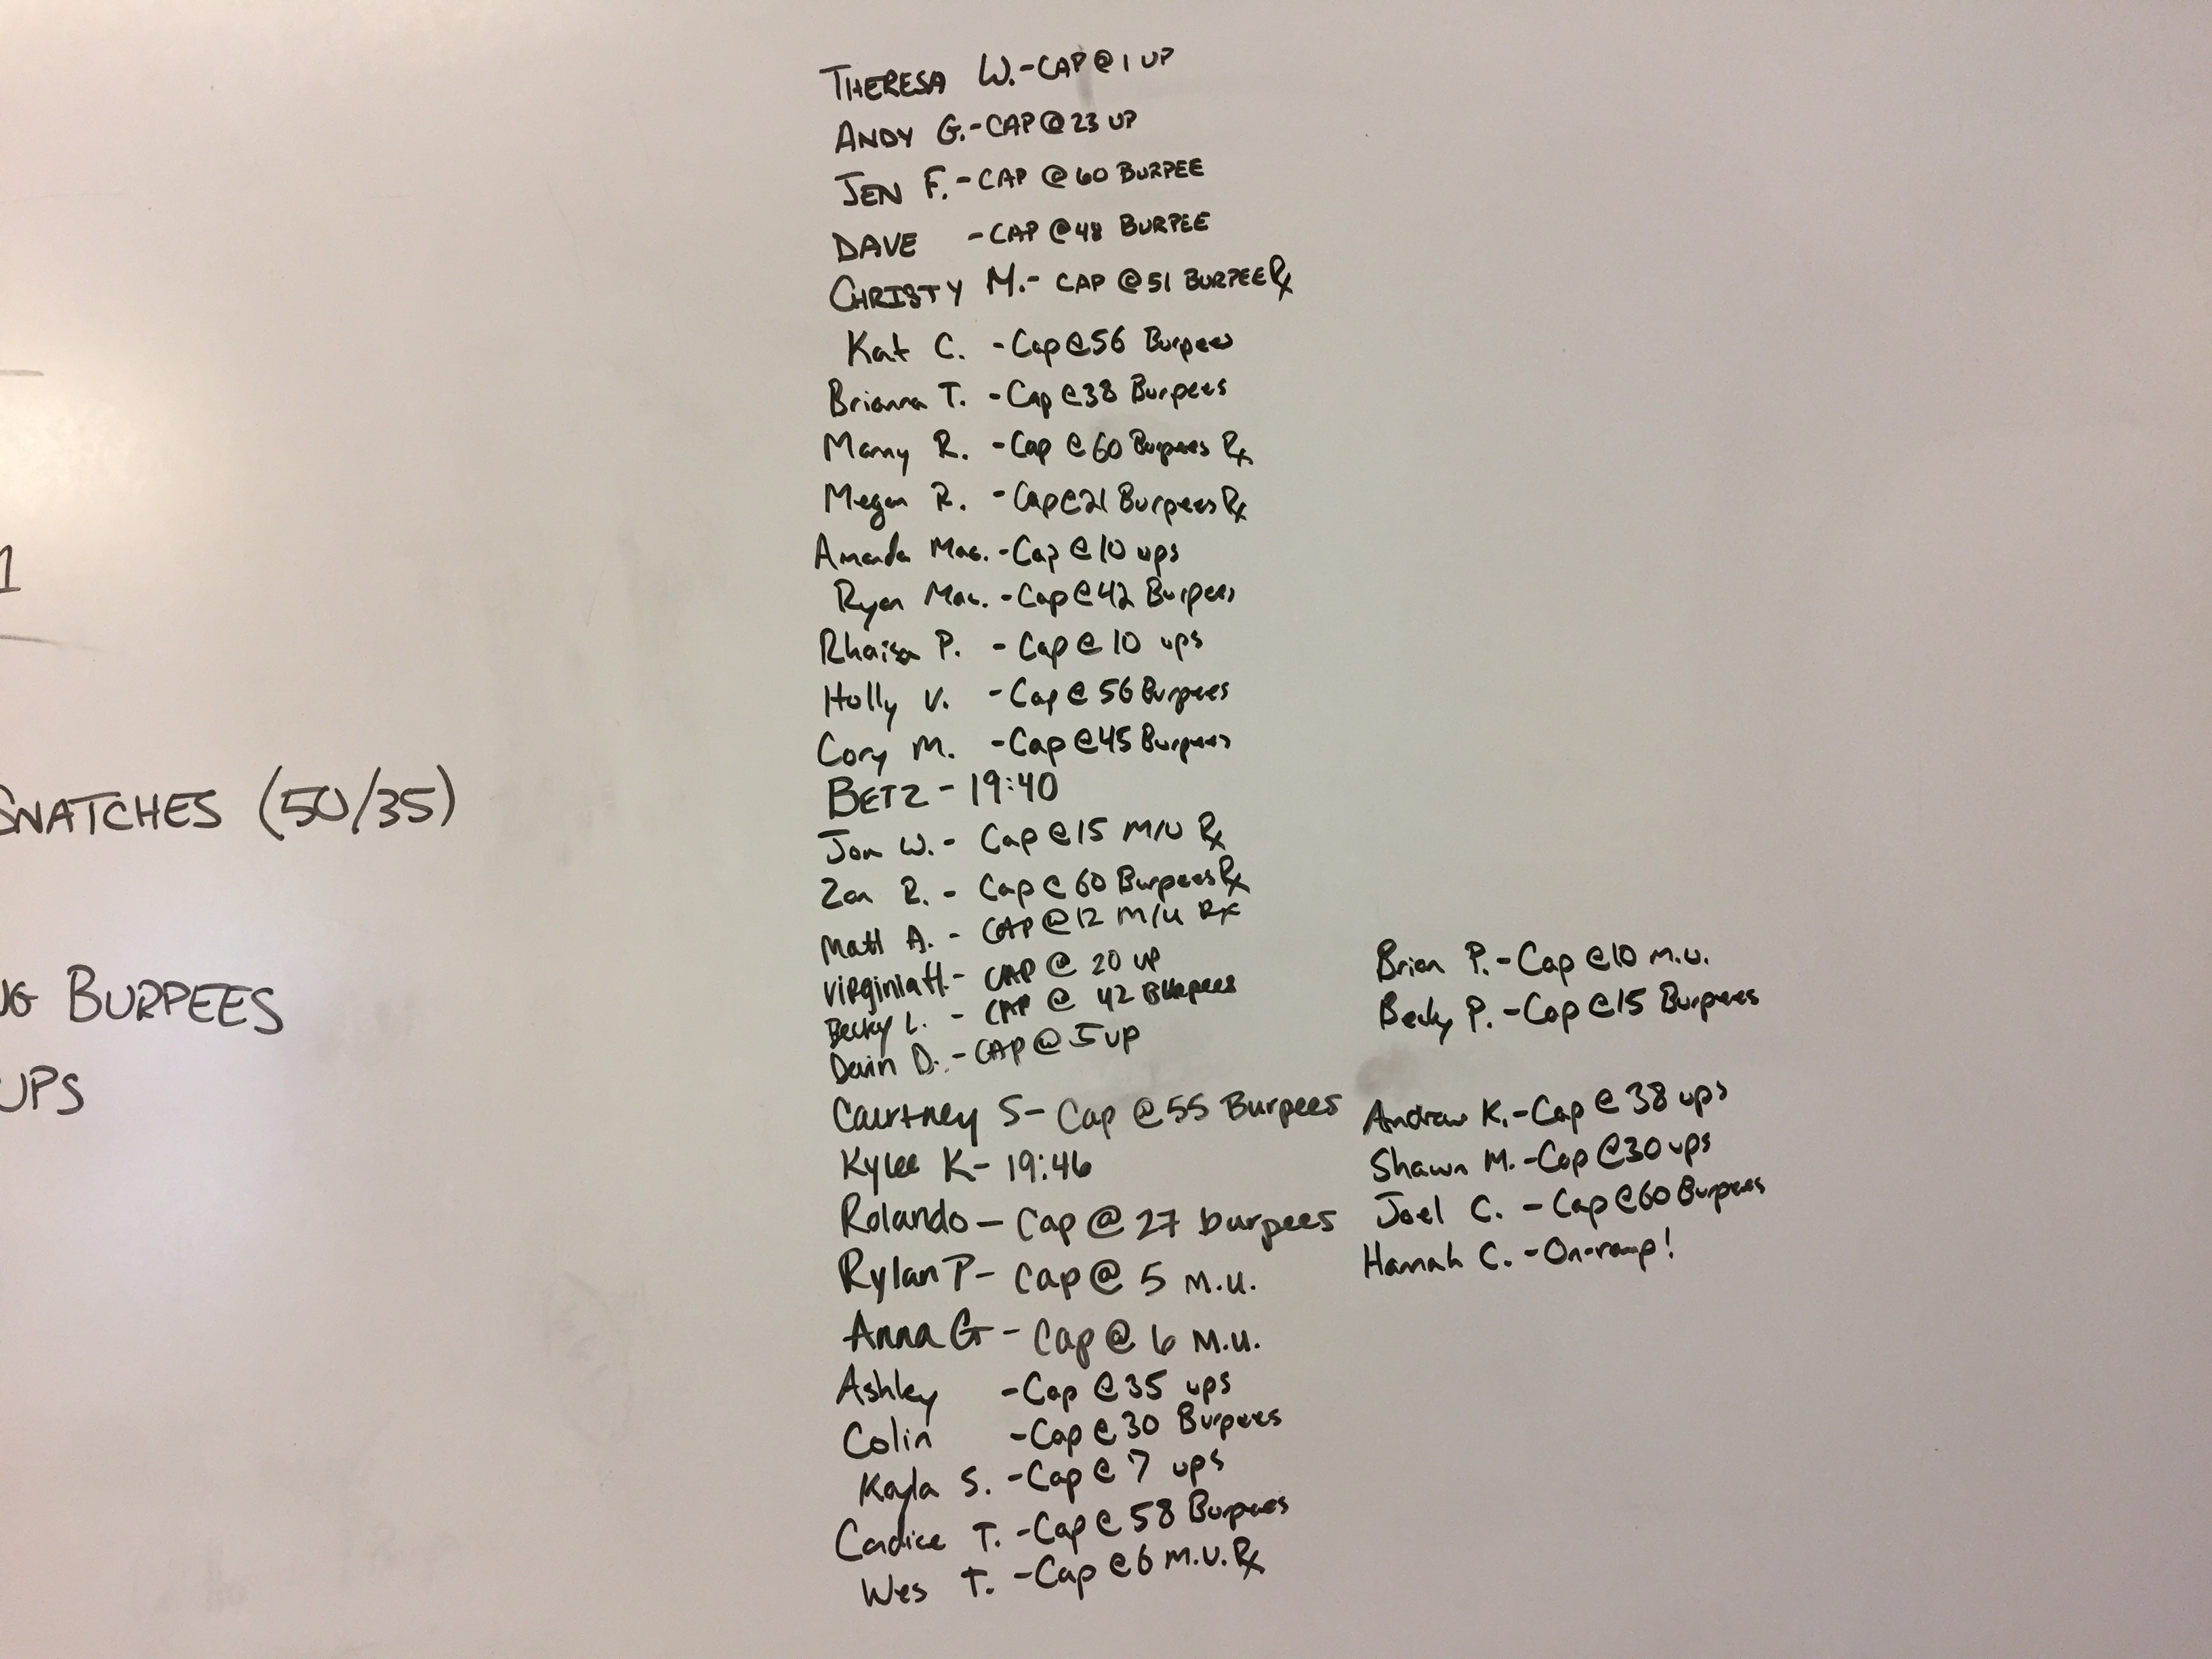 1
SNATCHES (50/35)
NG BURPEES
UPS
THERESA W.-CAP @ 1 UP
ANDY G.-CAP @ 23 UP
JEN F.-CAP @ 60 BURPEE
DAVE -CAP @ 48 BURPEE
CHRISTY M.- CAP @ 51 BURPEE Rx
Kat C. -Cap @ 56 Burpees
Brianna T. -Cap @ 38 Burpees
Manny R. -Cap @ 60 Burpees Rx
Megan R. -Cap @ 21 Burpees Rx
Amanda Mac. -Cap @ 10 ups
Ryan Mac. -Cap @ 42 Burpees
Rhaisa P. -Cap @ 10 ups
Holly V. -Cap @ 56 Burpees
Cory M. -Cap @ 45 Burpees
BETZ - 19:40
Jon W. - Cap @ 15 M/U Rx
Zan R. - Cap @ 60 Burpees Rx
Matt A. - CAP @ 12 M/U Rx
Virginia H. - CAP @ 20 UP
Becky L. - CAP @ 42 Burpees
Devin D. - CAP @ 5 UP
Courtney S- Cap @ 55 Burpees
Kylee K- 19:46
Rolando - Cap @ 27 burpees
Rylan P- Cap @ 5 M.U.
Anna G - Cap @ 6 M.U.
Ashley -Cap @ 35 ups
Colin -Cap @ 30 Burpees
Kayla S. -Cap @ 7 ups
Candice T. -Cap @ 58 Burpees
Wes T. -Cap @ 6 M.U. Rx
Brian P. -Cap @ 10 M.U.
Becky P. -Cap @ 15 Burpees
Andrew K. -Cap @ 38 ups
Shawn M. -Cap @ 30 ups
Joel C. -Cap @ 60 Burpees
Hannah C. -On-ramp!